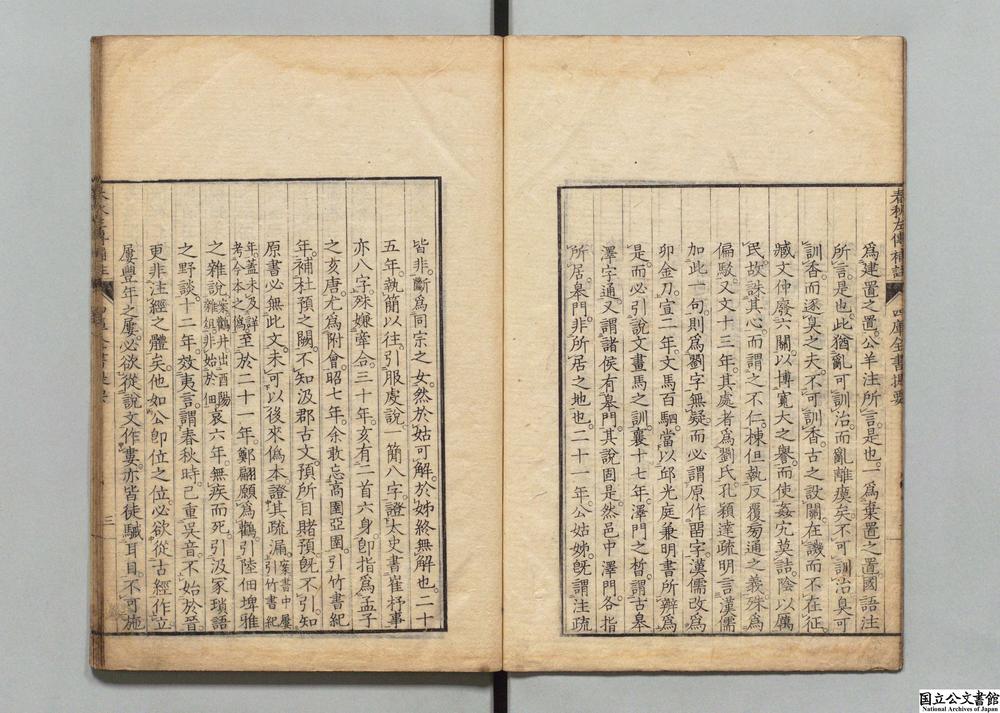 春秋左傳補註 四庫全書提要
爲建置之置。公羊注所言。是也。爲棄置之置。國語注
所言。是也。此猶亂可訓治。而亂離瘼矣。不可訓治。臭可
訓香。而逐臭之夫。不可訓香。古之設關。在譏而不在征。
臧文仲廢六關。以博寬大之譽。而使姦宄莫詰。陰以厲
民。故誅其心。而謂之不仁。棟但執反覆菊通之義。殊爲
偏駁。又文十三年。其處者爲劉氏。孔穎達疏。明言漢儒
加此一句。則爲劉字無疑。而必謂原作畱字。漢儒改爲
卯金刀。宣二年。文馬百駟。當以邱光庭兼明書所辨爲
是。而必引說文畫馬之訓。襄十七年。澤門之晳。謂古臯
澤字通。又謂諸侯有臯門。其說固是。然邑中澤門。各指
所居。臯門。非所居之地也。二十一年。公姑姊。既謂注疏
皆非。斷爲同宗之女。然於姑可解。於姊終無解也。二十
五年。執簡以往。引服虔說。一簡八字。證太史書崔杼事
亦八字。殊嫌牽合。三十年。亥有二首六身。卽指爲孟子
之亥唐。尤爲附會。昭七年。余敢忘高圉亞圉。引竹書紀
年。補杜預之闕。不知汲郡古文。預所目睹。預既不引。知
原書必無此文。未可以後來僞本。證其疏漏。案書中屢引竹書紀
年。蓋未及詳考今本之僞。至於二十一年。鄭翩願爲鸛。引陸佃埤雅
之雜說。案鸛井出酉陽雜俎。非始於佃。哀六年。無疾而死。引汲冢瑣語
之野談。十二年。效夷言。謂春秋時。已重吳音。不始於晉
更非注經之體矣。他如公卽位之位。必欲從古經作立
屢豐年之屢。必欲從說文作婁。亦皆徒駴耳目。不可施
三
国立公文書館
National Archives of Japan